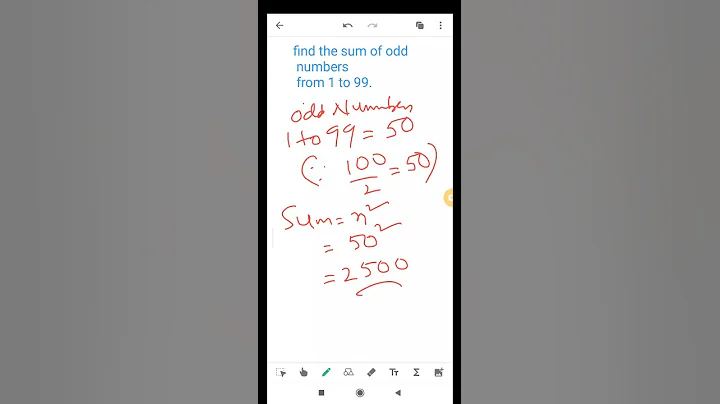 find the sum of odd
numbers
from 1 to 99.
odd Number
1 to 99 = 50
(∵ 100/2 = 50)
Sum = n²
= 50²
= 2500
Tт Σ